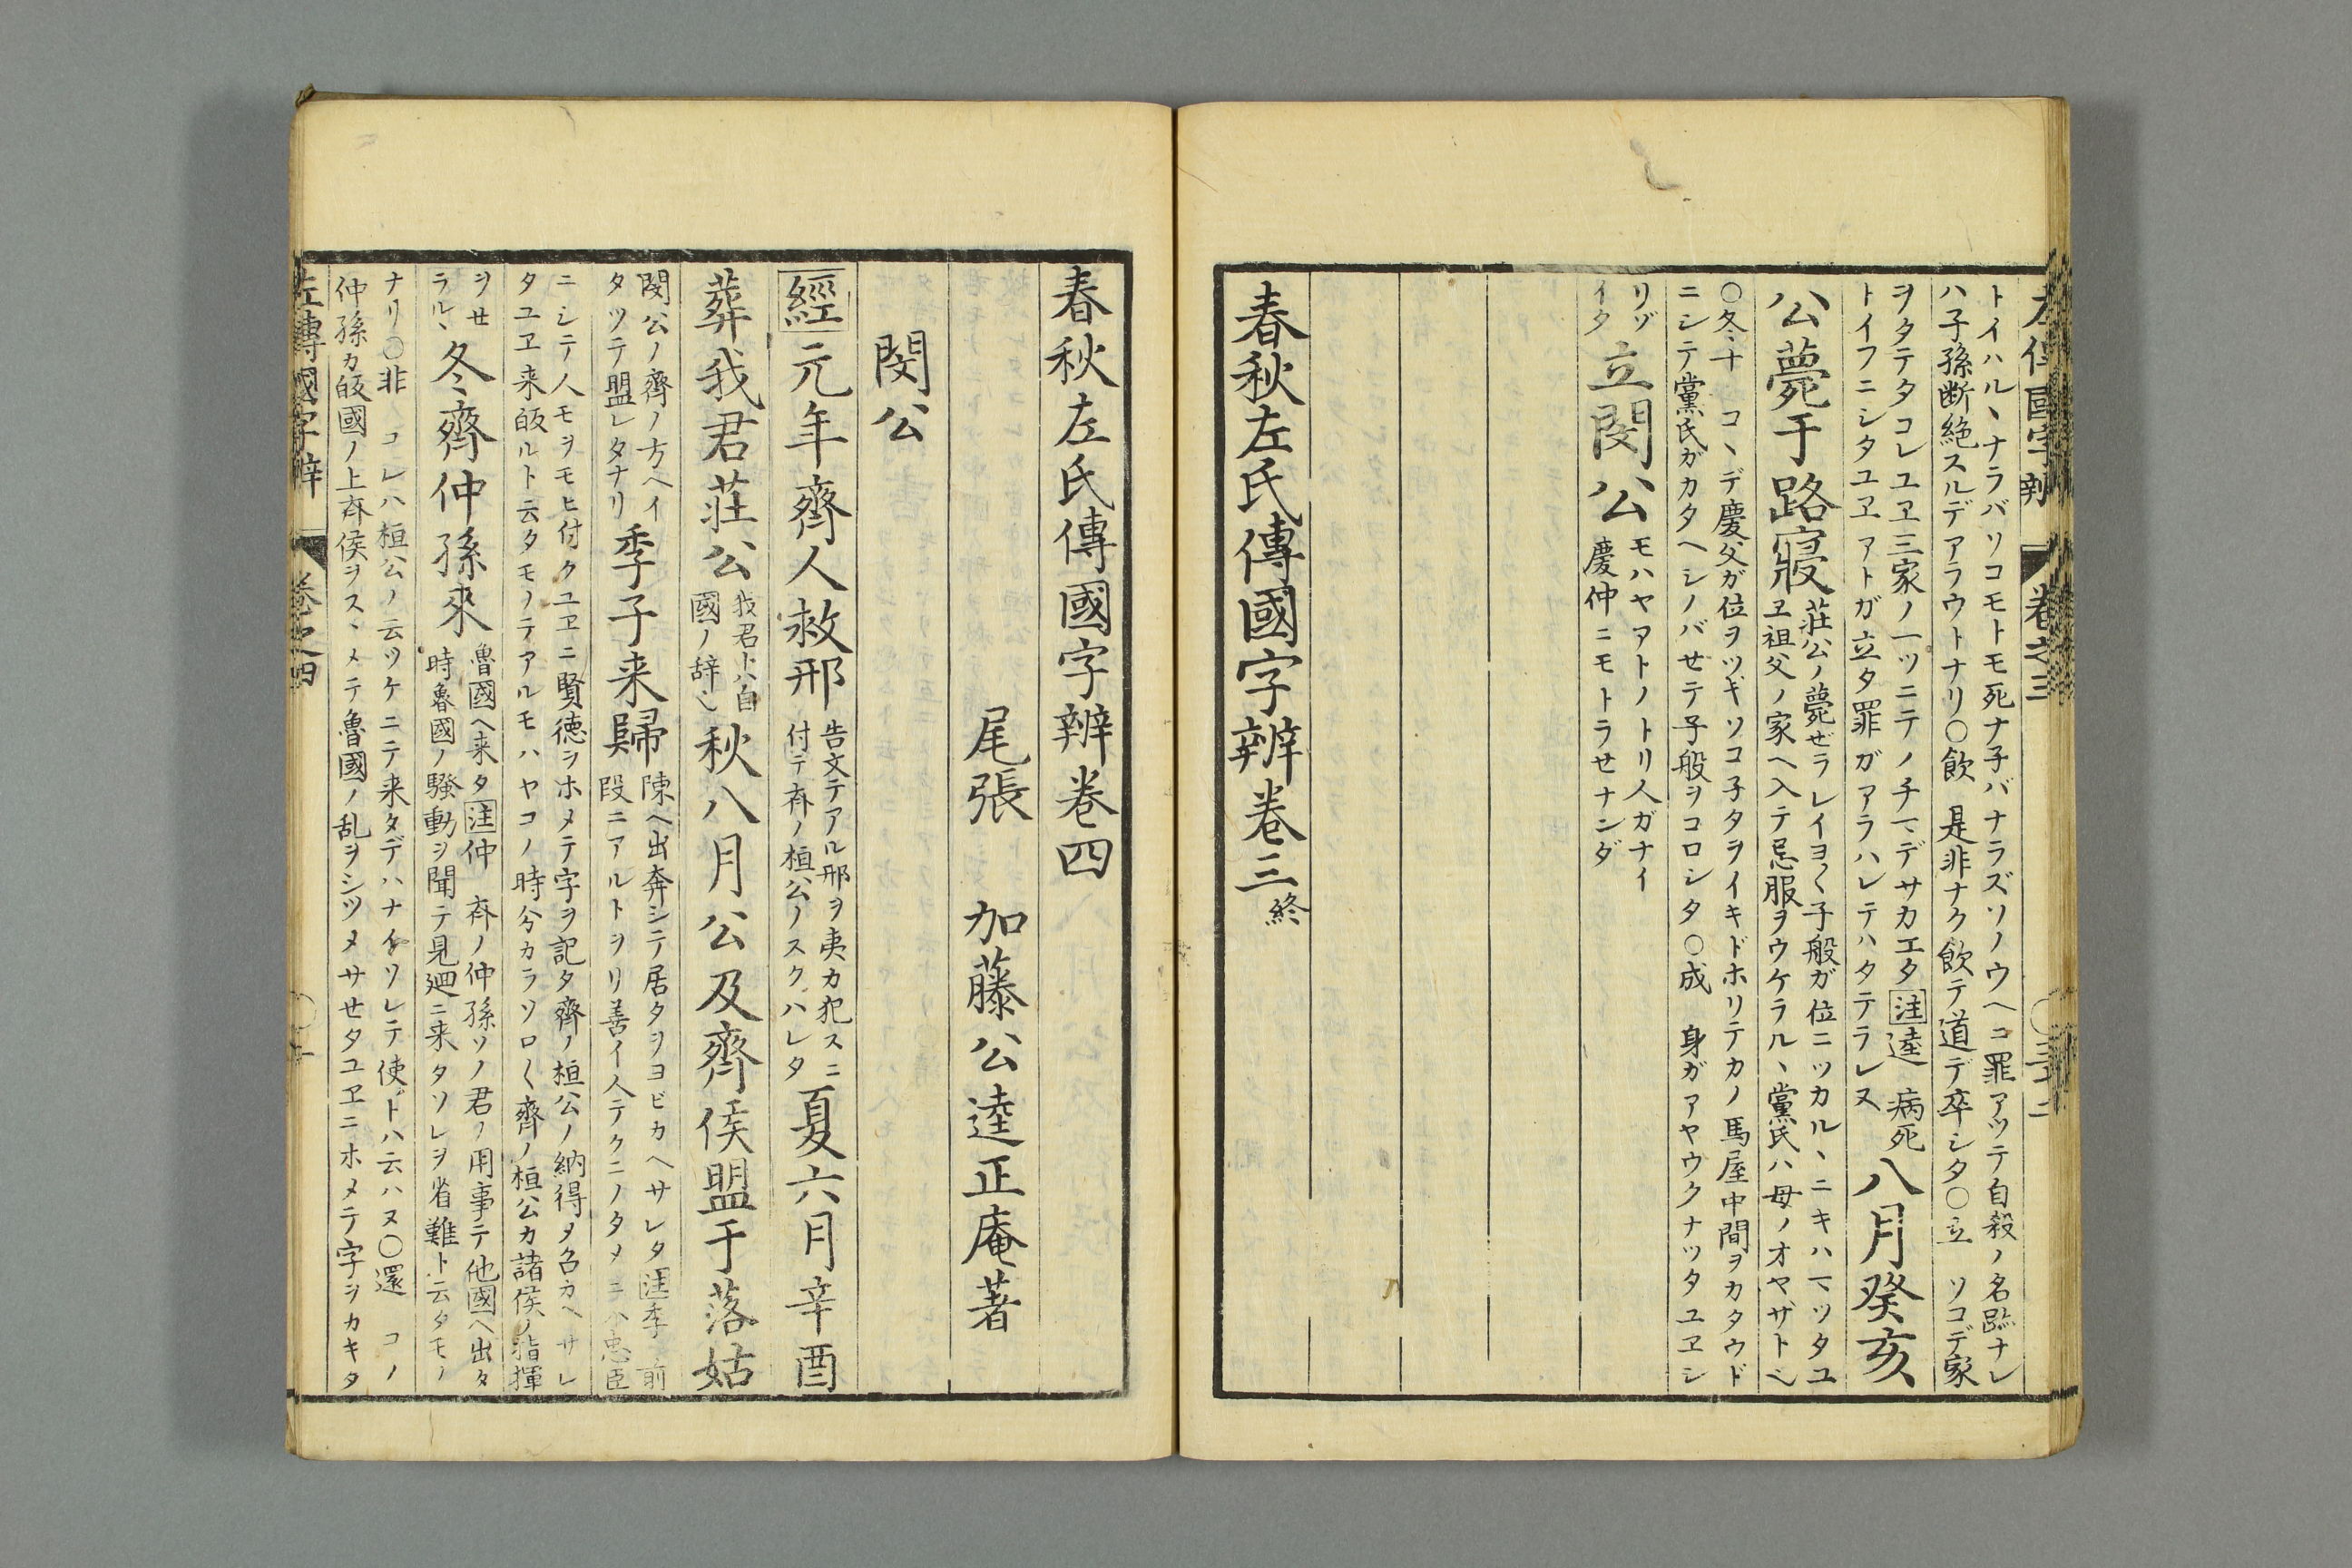 左傳國字辨 卷之三
トイハル、ナラバソコモトモ死ナ子バナラズソノウヘコ罪アツテ自殺ノ名跡ナレ
ハ子孫断絶スルデアラウトナリ〇飲 是非ナク飲テ道デ卒シタ〇立 ソコデ家
ヲタテタコレユヱ三家ノ一ツニテノチマデサカエタ注逵 病死
トイフニシタユヱアトガ立タ罪ガアラハレテハタテラレヌ
八月癸亥
公薨于路寢
莊公ノ薨ゼラレイヨ〱子般ガ位ニツカル、ニキハマツタユ
ヱ祖父ノ家ヘ入テ忌服ヲウケラル、黨氏ハ母ノオヤザト也
〇冬十 コ、デ慶父ガ位ヲツギソコ子タヲイキドホリテカノ馬屋中間ヲカタウド
ニシテ黨氏ガカタヘシノバセテ子般ヲコロシタ〇成 身ガアヤウクナツタユヱシ
リゾ
イタ
立閔公
モハヤアトノトリ人ガナイ
慶仲ニモトラセナンダ
春秋左氏傳國字辨卷三終
春秋左氏傳國字辨卷四
尾張 加藤公逵正庵著
閔公
經元年齊人救邢
告文テアル邢ヲ夷カ犯スニ
付テ斉ノ桓公ノスクハレタ
夏六月辛酉
葬我君莊公
我君トハ自
國ノ辞也
秋八月公及齊侯盟于落姑
閔公ノ齊ノ方ヘイ
タツテ盟レタナリ
季子来歸
陳ヘ出奔シテ居タヲヨビカヘサレタ注季 前
段ニアルトヲリ善イ人テクニノタメニハ忠臣
ニシテ人モヲモヒ付クユヱニ賢徳ヲホメテ字ヲ記タ齊ノ桓公ノ納得メ召カヘサレ
タユヱ来皈ルト云タモノテアルモハヤコノ時分カラソロ〱齊ノ桓公カ諸侯ノ指揮
ヲセ
ラル、
冬齊仲孫來
魯國ヘ来タ注仲 斉ノ仲孫ソノ君ノ用事テ他國ヘ出タ
時魯國ノ騒動ヲ聞テ見廻ニ来タソレヲ省難ト云タモノ
ナリ〇非 コレハ桓公ノ云ツケニテ来タデハナイソレテ使トハ云ハヌ〇還 コノ
仲孫カ皈國ノ上斉侯ヲス、メテ魯國ノ乱ヲシツメサセタユヱニホメテ字ヲカキタ
左傳國字辨 卷之四